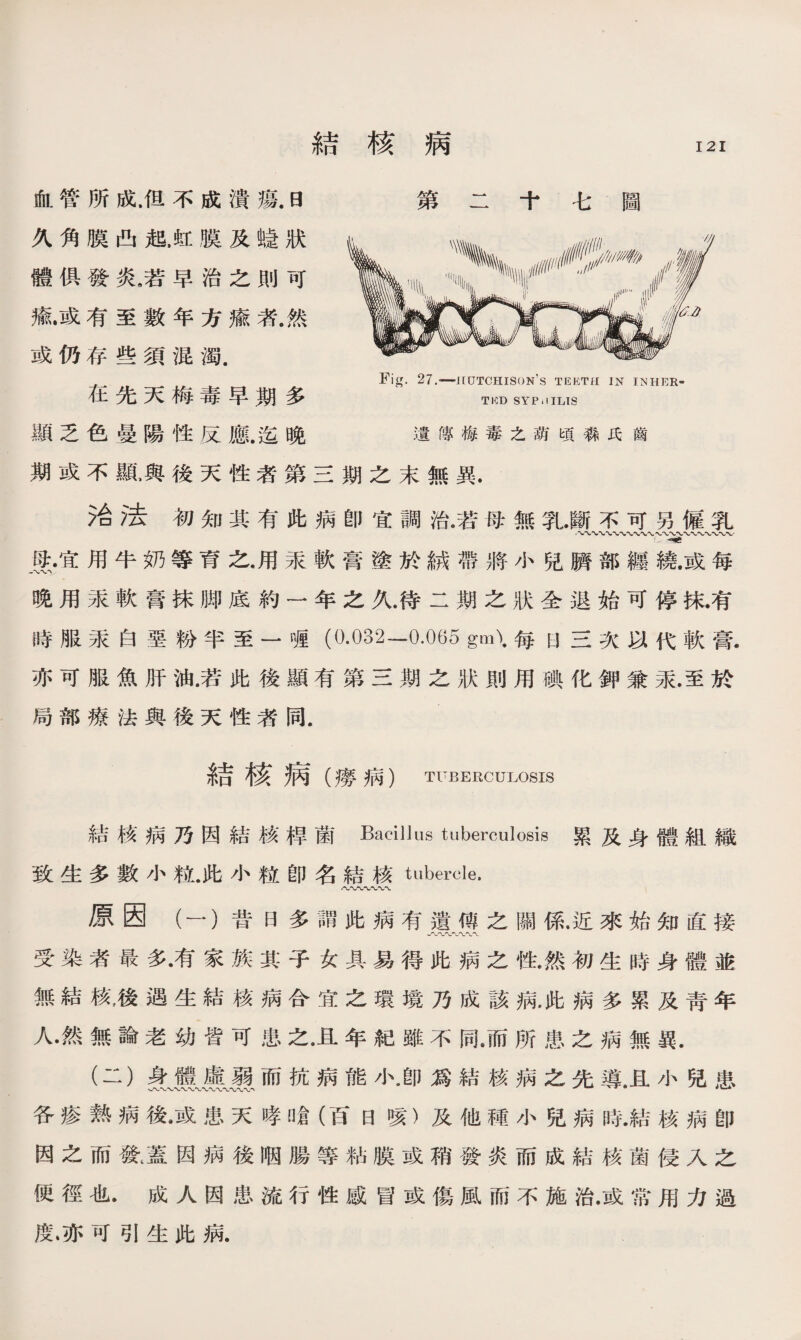 結核病 121
血管所成.但不成潰瘍.日
久角膜凸起.虹膜及蜨狀
體俱發炎.若早治之則可
瘉.或有至數年方瘉者.然
或仍存些須混濁.
在先天梅毒早期多
顯乏色曼陽性反應.迄晚
第二十七圖
G.D
Fig. 27.—HUTCHISON'S TEETH IN INHER-
TED SYPHILIS
遺傳梅毒之葫頃森氏齒
期或不顯.與後天性者第三期之末無異.
治法 初知其有此病卽宜調治.若母無乳.斷不可另僱乳
母.宜用牛奶等育之.用汞軟膏塗於絨帶將小兒臍部纒繞.或每
晚用汞軟膏抹脚底約一年之久.待二期之狀全退始可停抹.有
時服汞白堊粉半至一喱 (0.032—0.065 gm). 每日三次以代軟膏.
亦可服魚肝油.若此後顯有第三期之狀則用碘化鉀兼汞.至於
局部療法與後天性者同.
結核病 (癆病) TUBERCULOSIS
結核病乃因結核桿菌 Bacillus tuberculosis 累及身體組織
致生多數小粒.此小粒卽名結核 tubercle.
原因 (一) 昔日多謂此病有遺傳之關係.近來始知直接
受染者最多.有家族其子女具易得此病之性.然初生時身體並
無結核.後遇生結核病合宜之環境乃成該病.此病多累及靑年
人.然無論老幼皆可患之.且年紀雖不同.而所患之病無異.
(二) 身體虛弱而抗病能小.卽爲結核病之先導.且小兒患
各疹熱病後.或患天哮嗆(百日咳)及他種小兒病時.結核病卽
因之而發.蓋因病後咽腸等粘膜或稍發炎而成結核菌侵入之
便徑也. 成人因患流行性感冒或傷風而不施治.或常用力過
度.亦可引生此病.